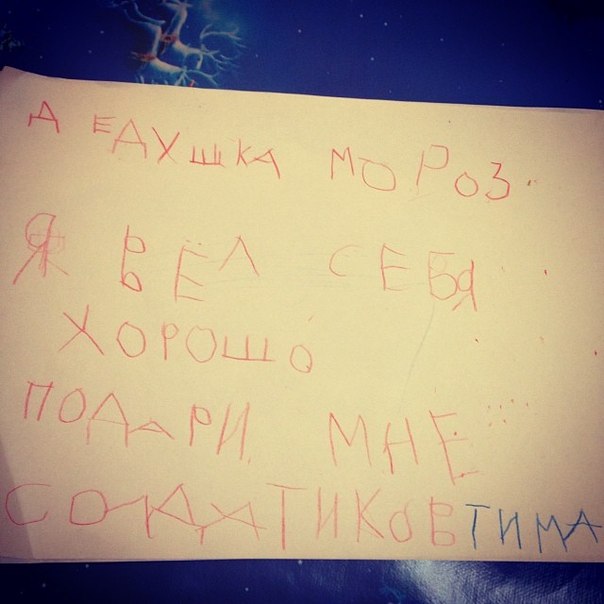 ДЕДУШКА МОРОЗ.
Я ВЁЛ СЕБЯ
ХОРОШО
ПОДАРИ МНЕ
СОЛДАТИКОВ ТИМА